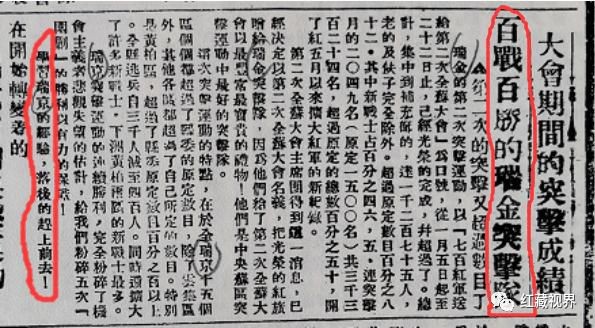 大會期間的突擊成績
百戰百勝的瑞金突擊隊
▲第二次的突擊又超過數目了
瑞金的第二次突擊運動，以「七百紅軍送
給第二次全蘇大會」為口號，從一月五起至
二十二日止，已經光榮的完成，幷超過了。總
計，集中到補充師的，達一千二百七十五人，
老的及伕子完全除外。超過原定數目百分之八
十二。其中新戰士占百分之四六，五。連突擊
月的二〇四九名（原定一五〇〇名）共三千三
百二十四名，超過原定的總數百分之五十，開
了紅五月以來擴大紅軍的新紀錄。
第二次全蘇大會主席團得到這一消息，已
經決定以第二次全蘇大會名義，把光榮的紅旗
贈給瑞金突擊隊，因為他們給了第二次全蘇大
會以最豐富最寶貴的禮物！他們是中央蘇區突
擊運動中最好的突擊隊。
這次突擊運動的特點，在於全瑞京十五個
區個個都超過了縣委的原定數目，除了雲集區
外，其他各區都超過了自己所定的數目。特別
是黃柏區，超過了縣委原定數目百分之百以上
。全縣逃兵自三千人減至四百人。同時還擴大
了許多新戰士，下洲黃柏兩區的新戰士最多。
瑞京突擊運動的連續勝利，完全粉碎了機
會主義者悲觀失望的估計，給我們粉碎五次「
圍剿」的勝利以有力的保證！
學習瑞京的經驗，落後的趕上前去！
在開始轉變着的
红藏视界